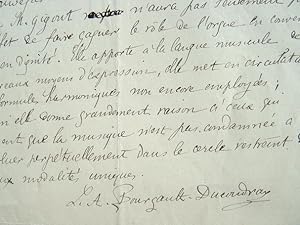 M. Gigout n'aura pas seulement
de faire gagner le rôle de l'orgue en
en dignité. Elle apporte à la langue musicale de
moyens d'expression, elle met en circulation
formules harmoniques non encore employées;
elle donne grandement raison à ceux qui
que la musique n'est pas condamnée à
perpétuellement dans le cercle restreint d
modalités uniques.
L. A. Bourgault-Ducoudray